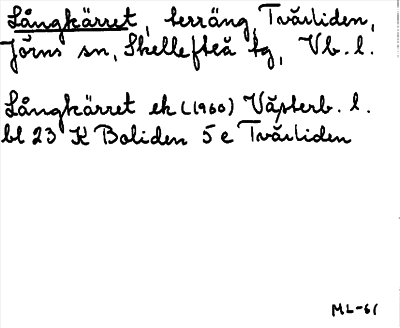 Långkärret, terräng, Tvärliden,
Jörns sn, Skellefteå tg, Vb. l.
Långkärret ek (1960) Västerb. l.
bl 23 K Boliden 5 e Tvärliden
ML-61